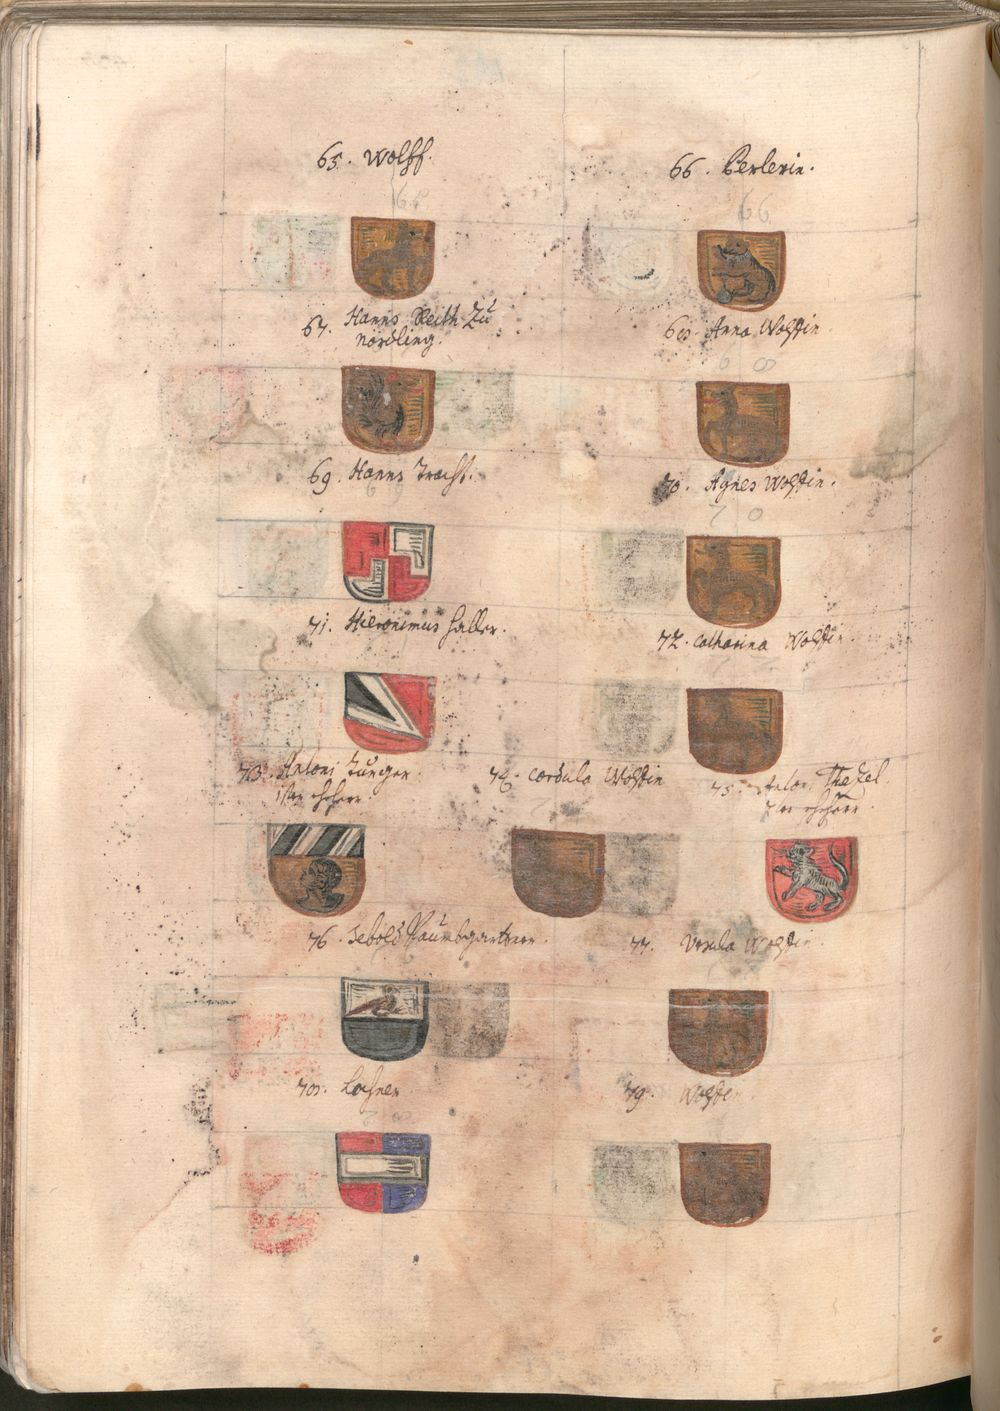 65. Wolff.
66. Perlerin.
66
67. Hanns Reith Zu
nördling.
68. Anna Wolffin
68
69. Hanns Tracht.
70. Agnes Wolffin.
70
71. Hieronimus Haller.
72. Catharina Wolffin
73. Antoni Tunger
1ster Eheherr.
74. Cordula Wolffin
75. Anton Thezel
2ter Eheherr.
76. Sebold Paumbgartner.
77. Ursula Wolffin
78. Lochner
79. Wolffin